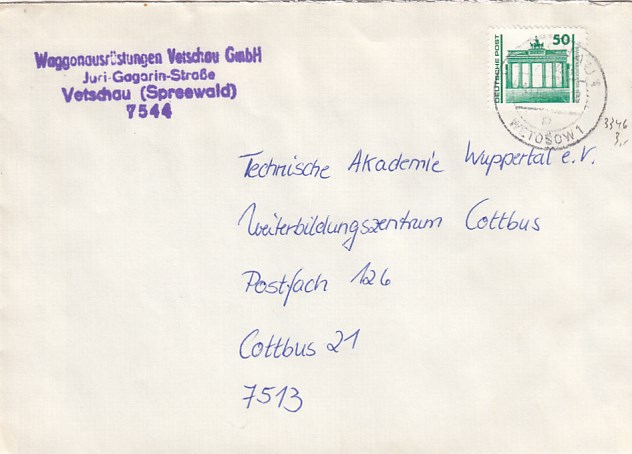 Waggonausrüstungen Vetschau GmbH
Juri-Gagarin-Straße
Vetschau (Spreewald)
7544
DEUTSCHE POST
50
WĚTOŠOW 1
3346
3,-
Technische Akademie Wuppertal e.V.
Weiterbildungszentrum Cottbus
Postfach 126
Cottbus 21
7513